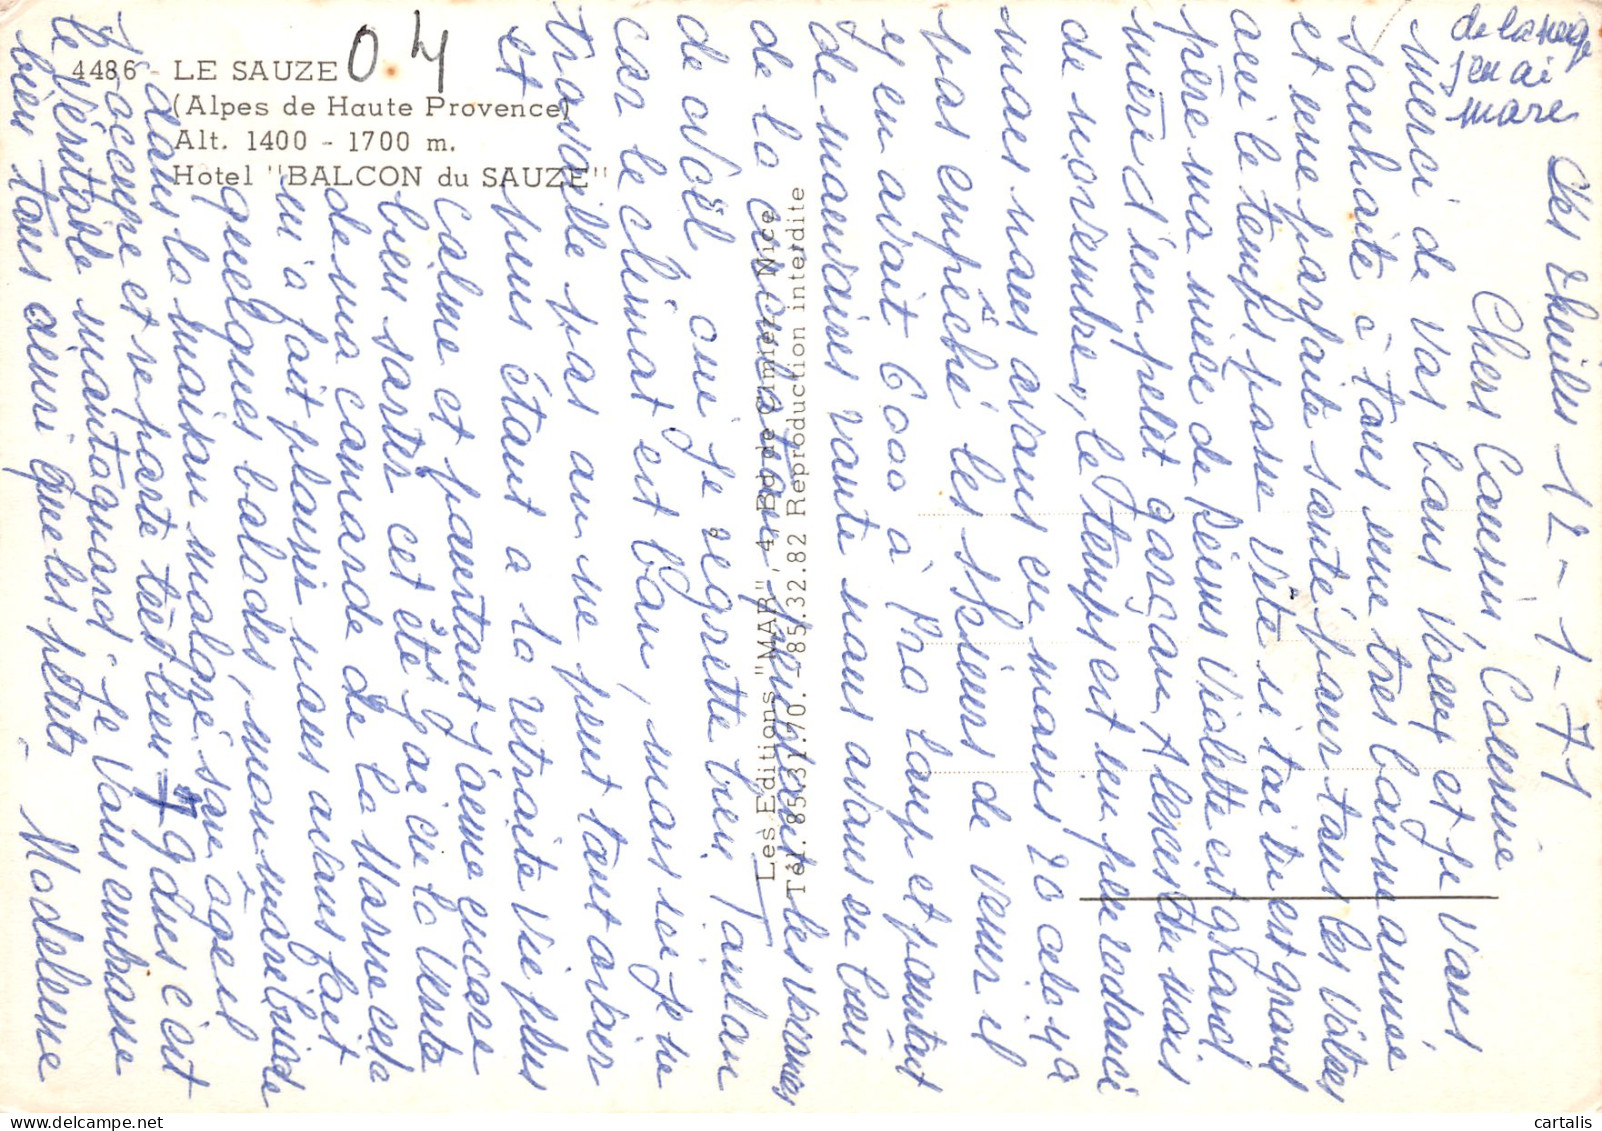 4486 - LE SAUZE
(Alpes de Haute Provence)
Alt. 1400 - 1700 m.
Hôtel "BALCON du SAUZE"
04
Les Editions "MAR", 4, Bd de Cimiez - Nice
Tél. 85.31.70. - 85.32.82 Reproduction interdite
12-1-71
Chers Cousin, Cousine
merci de vos bons Vœux et je vous
souhaite à tous une très bonne année
et une parfaite santé pour tous les vôtres
ici le temps passe vite si toi tu est grand
père ma nièce de Reims Violette est grand
mère d'un petit garçon du mois
de novembre, le temps est un peu radouci
mais nous avons eu moins 20 cela n'a
pas empêché les skieurs de venir il
y en avait 6000 à Pra Loup et pourtant
de mauvaises route nous avions eu bien
de la
de Noël, que je regrette bien Toulon
car le climat est bon, mais ici je ne
travaille pas on ne peut tout avoir
et puis étant à la retraite vie plus
calme et pourtant j'aime encore
bien sortir cet été j'ai eu la venue
de ma camarade de la Marne cela
m'a fait plaisir nous avons fait
quelques balades, mon mari bricole
dans la maison malgré son âge il
s'occupe et se porte très bien c'est
le véritable montagnard. Je vous embrasse
bien tous ainsi que les petits - Madeleine
de la neige
j'en ai
marre
cartalis